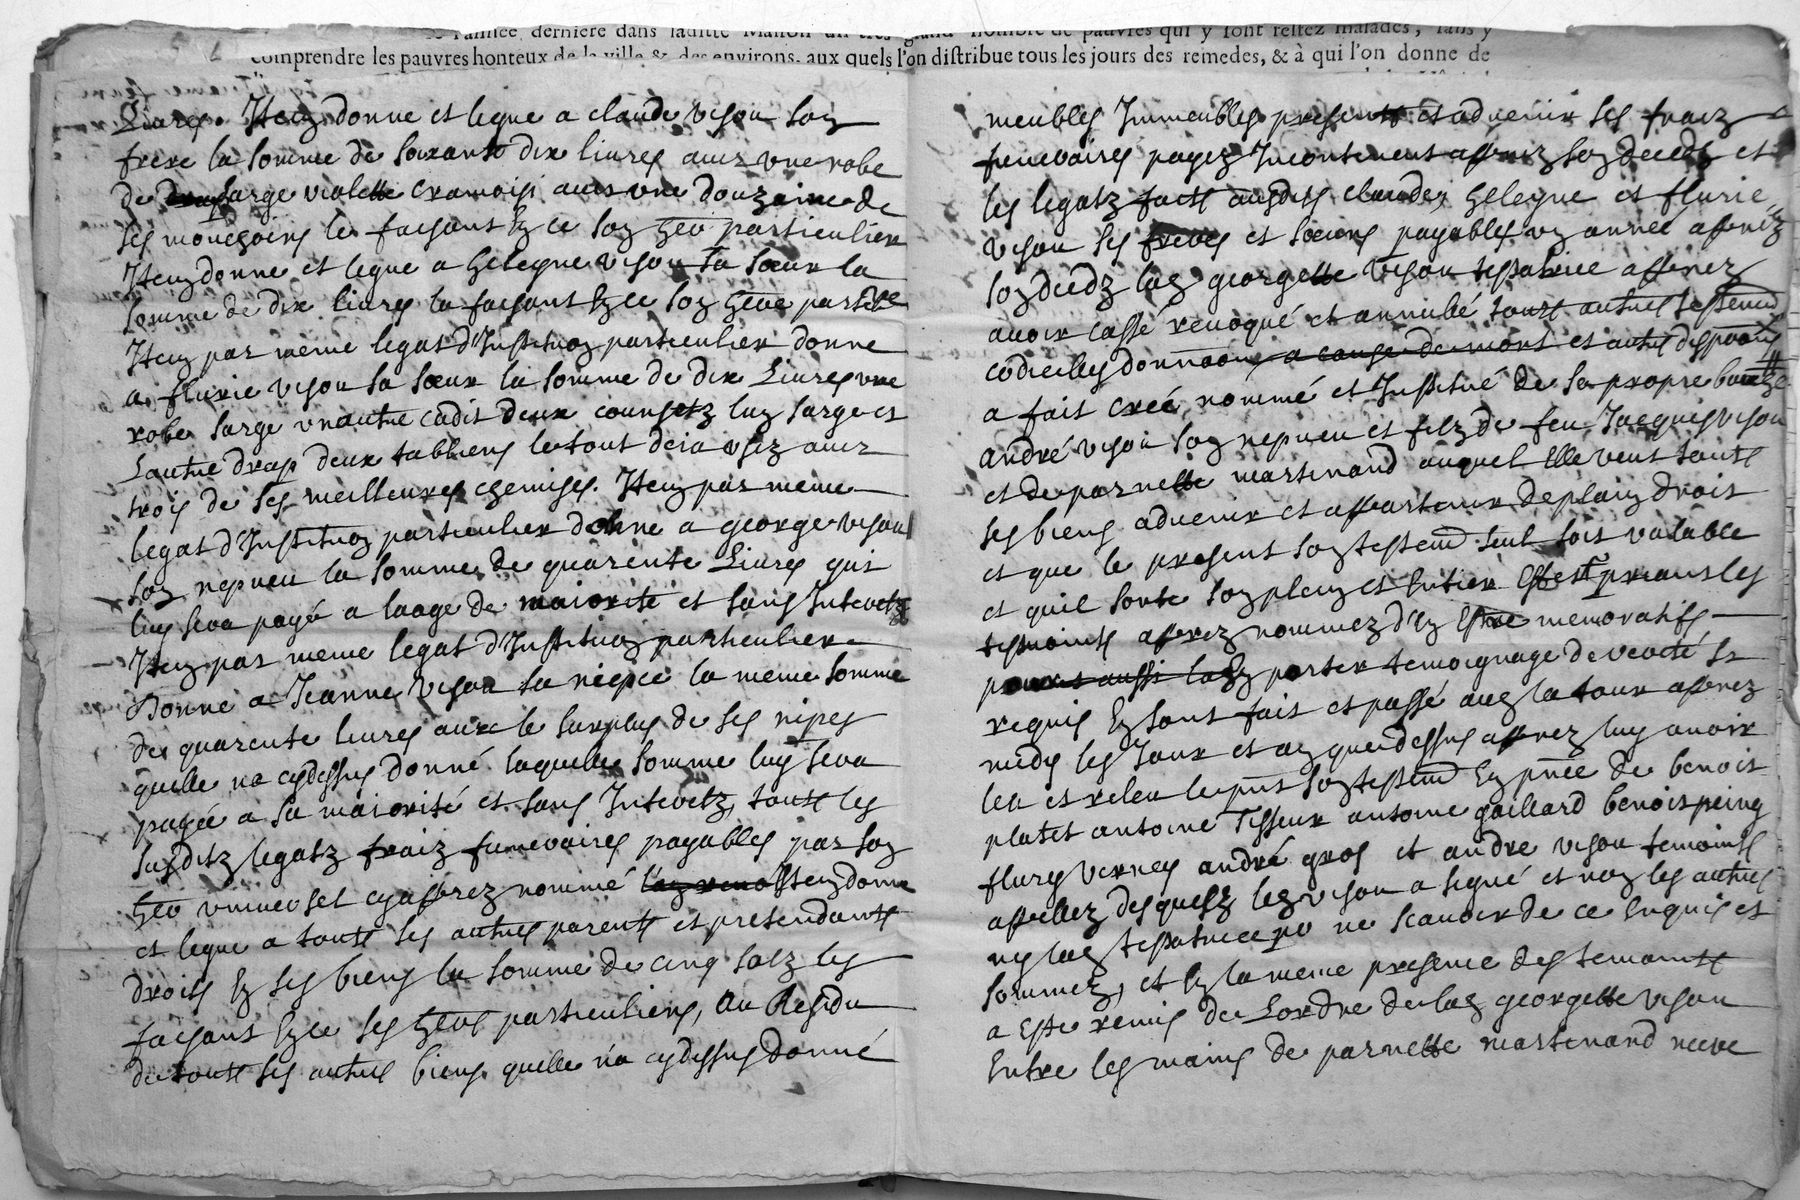 l'année derniere dans laditte Maison un tres grand nombre de pauvres qui y sont restez malades, sans y
comprendre les pauvres honteux de la ville & des environs, aux quels l'on distribue tous les jours des remedes, & à qui l'on donne de
Livres. Item donne et legue a claude vison son
frere la somme de soixante dix livres avec une robe
de sarge violette cramoisi avec une douzaine de
ses mouchoirs le faisant en ce son her particulier
Item donne et legue a helegne vison sa sœur la
somme de dix livres la faisant en ce son here part
Item par meme legat d'Institu͠on particulier donne
a flurie vison sa sœur la somme de dix Livres une
robe sarge un autre cadit deux corsetz lun sarge et
Lautre drap deux tabliers le tout deia usez avec
trois de ses meilleures chemises. Item par meme
legat d'Institu͠on particulier donne a george vison
son nepveu la somme de quarente Livres qui
luy sera payé a laage de maiorité et sans Interetz
Item par meme legat d'Institu͠on particulier
Donne a Jeanne vison sa niepce la meme somme
de quarente livres avec le surplus de ses nipes
quelle na cydessus donné laquelle somme luy sera
payée a sa maiorité et sans Interetz, touts les
susditz legatz fraiz funeraires payables par son
her universel cyapprez nommé Item donne
et legue a touts ses autres parents et pretendants
droits en ses biens la somme de cinq solz les
faisant en ce ses hers particuliers, Au Residu
de touts ses autres biens quelle na cydessus donné
meubles Immeubles presents et advenir ses fraiz
funeraires payez Incontinent apprez son decedz et
les legatz faits ausdits claude, helegne et flurie
vison ses freres et sœurs payables un année apprez
son decedz lad georgette vison testatrice apprez
avoir cassé revoqué et annullé touts autres testemens
codicilles donnaons a cause de mort et autres disp͠ons
a fait creé, nommé et Institué de sa propre bouche
andré vison son nepveu et filz de feu Jacques vison
et de parnette martinand auquel elle veut touts
ses biens advenir et appartenir de plain droit
et que le present son testem͠t seul soit valable
et quil sorte son plein et entier effect priant les
tesmoints apprez nommez d'en estre memoratifs
porter temoignage de verité si
requis en sont fait et passé au la tour apprez
midy les Jour et an que dessus apprez luy avoir
leu et releu le pn͠t son testem͠t en pn͠ce de benoit
platet antoine Tisseur antoine gaillard benoist peing
flury verney andré gros et andre vison temoints
appellez desquelz led vison a signé et non les autres
ny lad testatrice po͠ ne scavoir de ce enquis et
sommez, et en la meme presence des temoints
a este remis de Lordre de lad georgette vison
Entre les mains de parnette martinand veuve